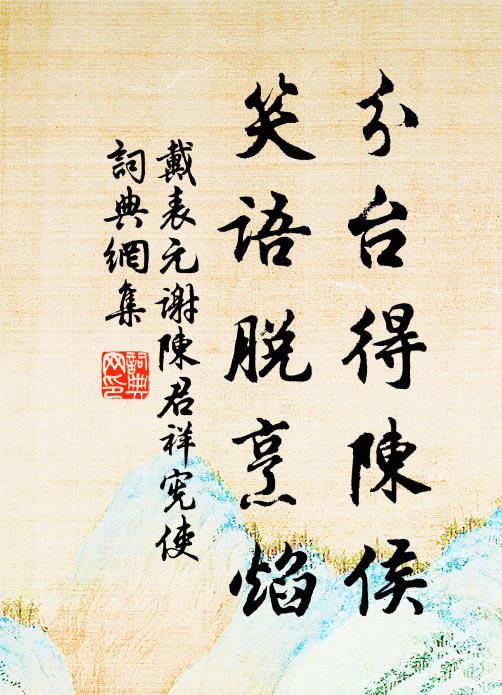 分台得陳侯
笑語脱烹焰
戴表元謝陳君祥宪使
詞典網集
詞典
网印